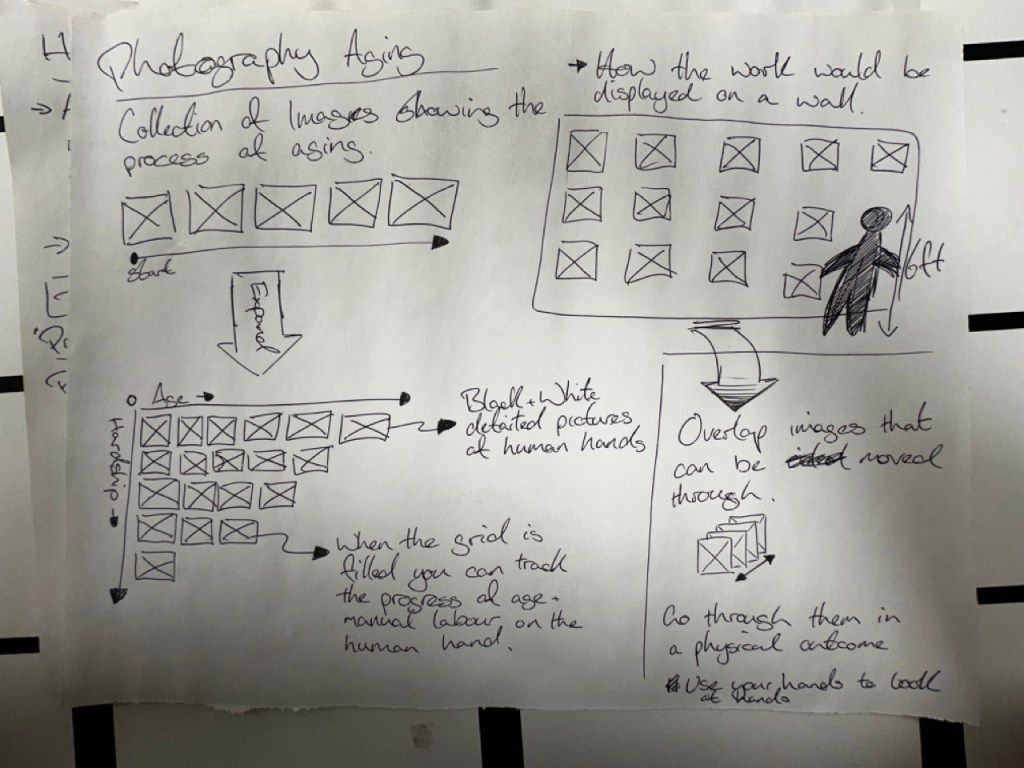 Photography Aging
Collection of Images Showing the
process of aging.
Start
Expand
Age
Hardship
Black + White
detailed pictures
of human hands
When the grid is
filled you can track
the progress of age +
manual labour on the
human hand.
How the work would be
displayed on a wall.
6ft
Overlap images that
can be moved
through.
Go through them in
a physical outcome
* Use your hands to look
at hands